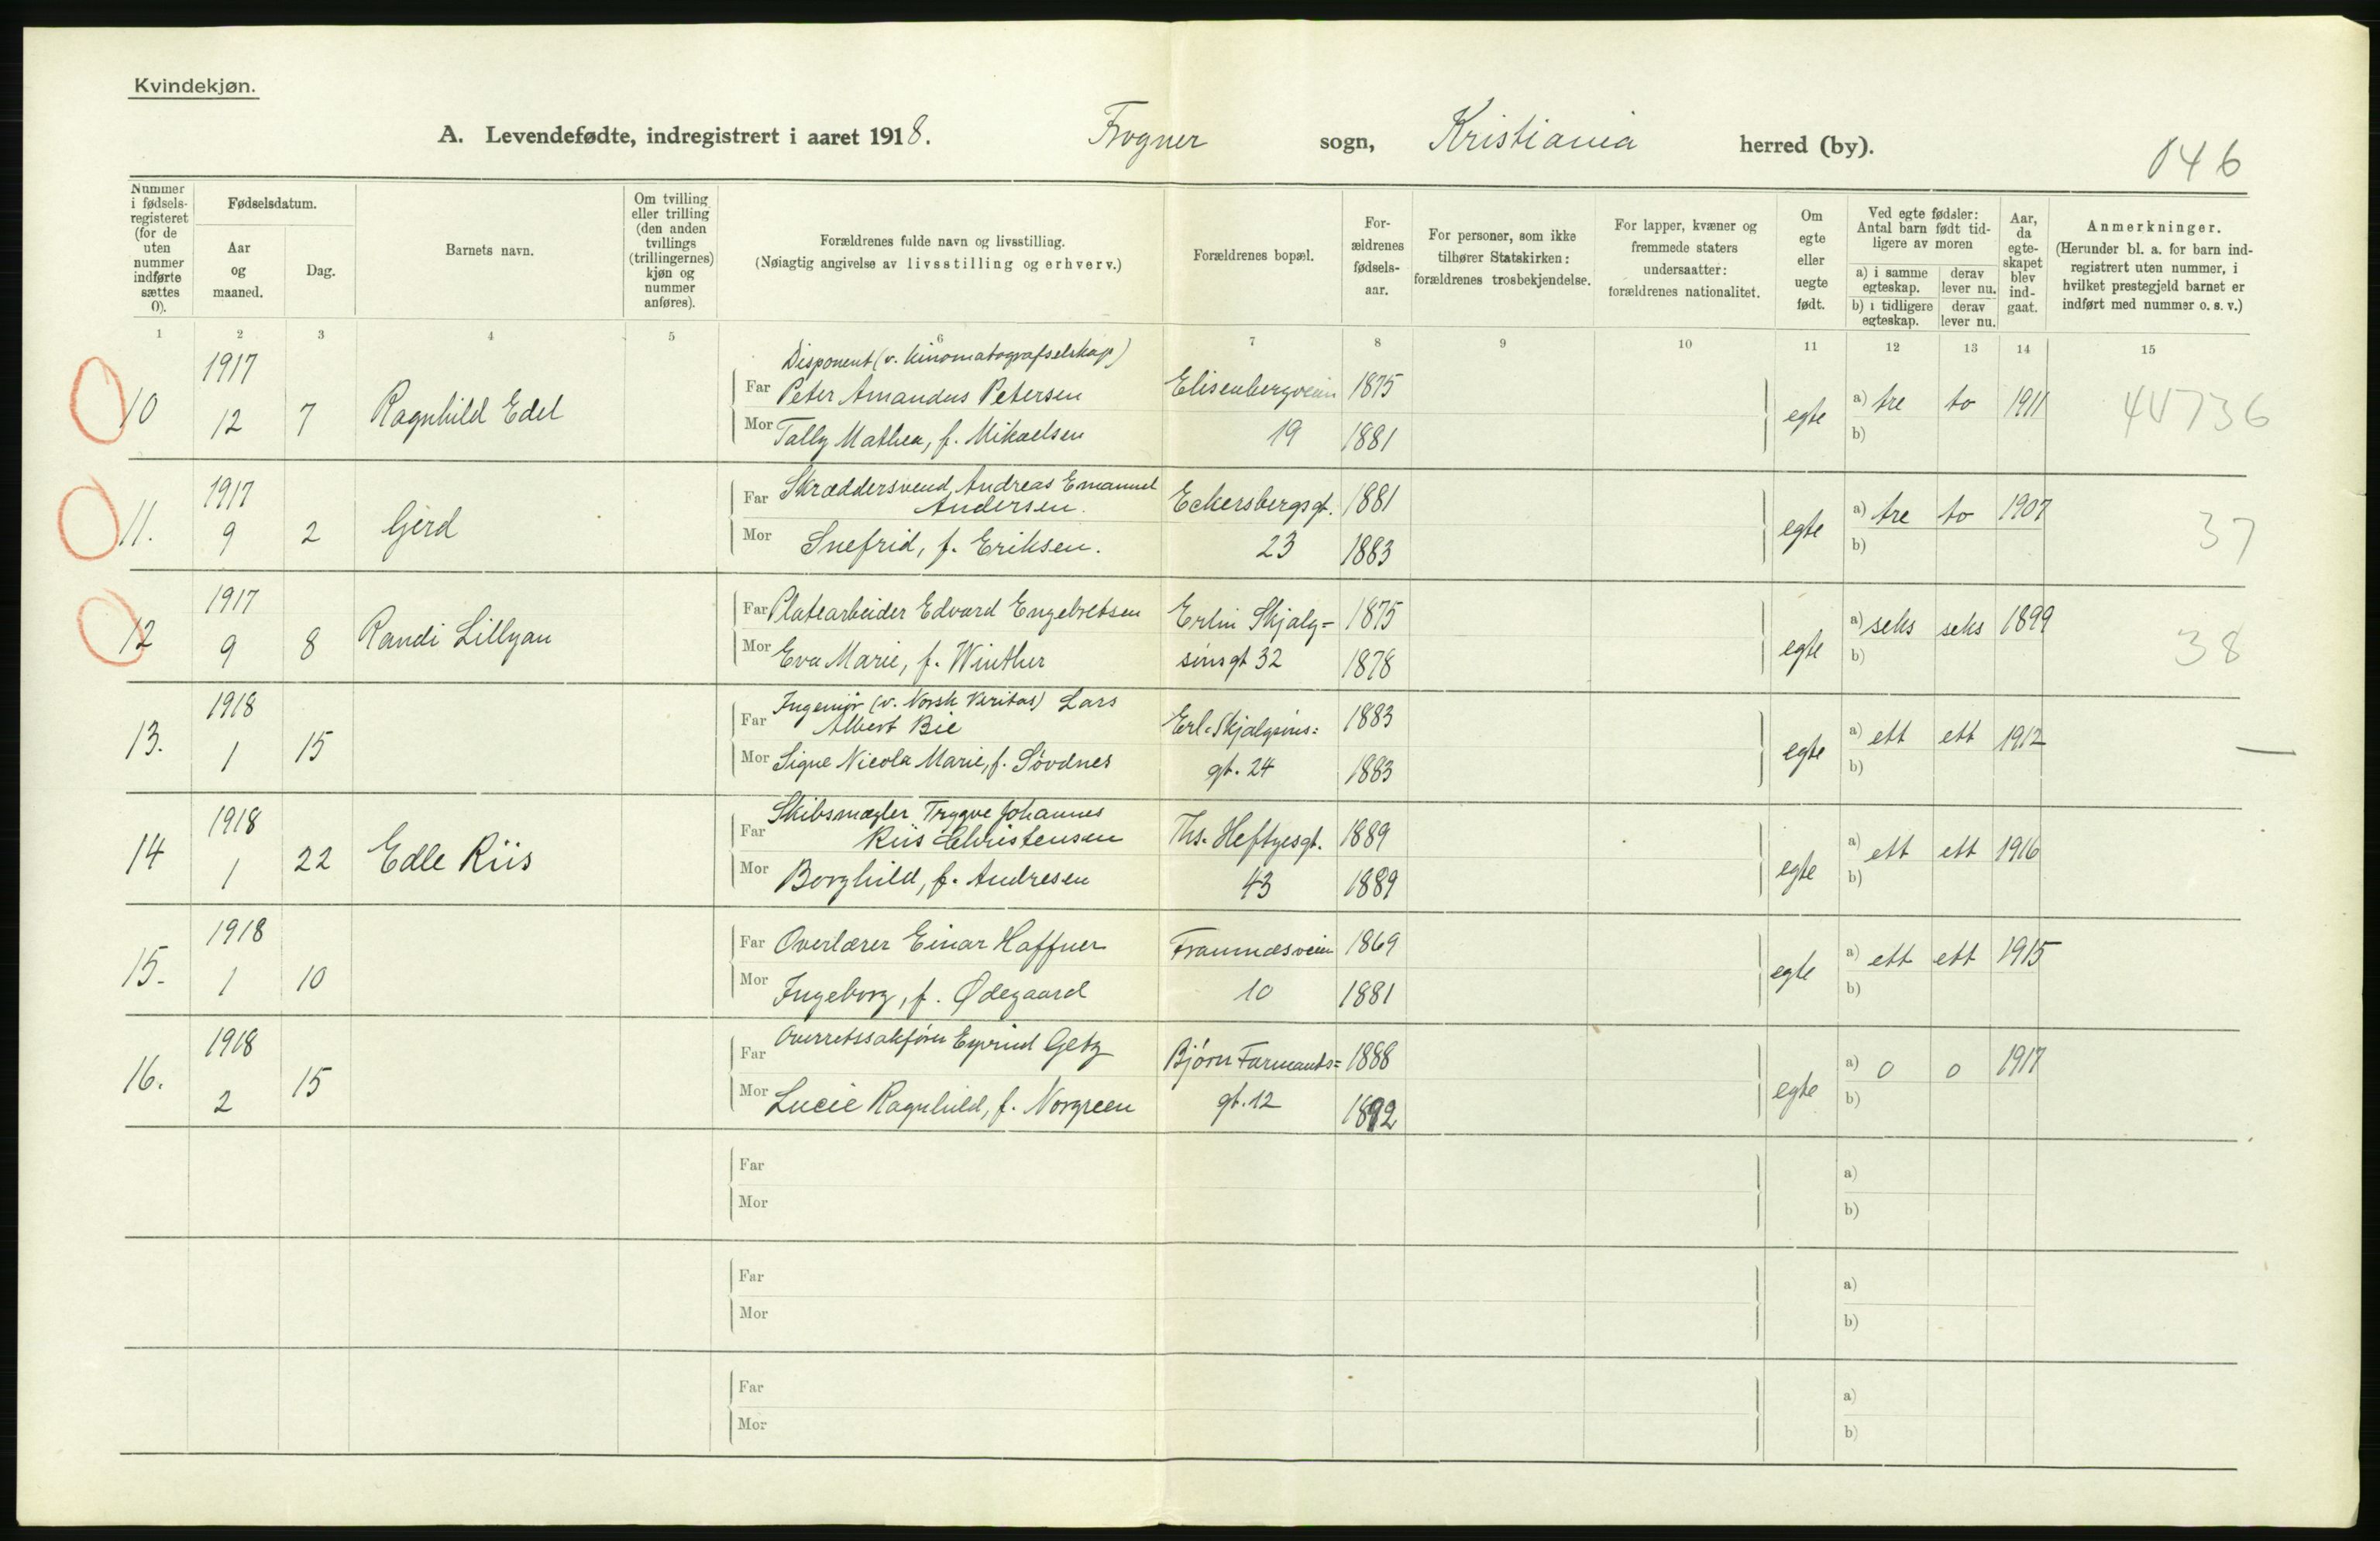 Kvindekjøn.
A. Levendefødte, indregistrert i aaret 1918. Frogner sogn, Kristiania herred (by).
046
Nummer i fødsels-registeret (for de uten nummer indførte sættes 0).
Fødselsdatum.
Aar og maaned.
Dag.
Barnets navn.
Om tvilling eller trilling (den anden tvillings (trillingernes) kjøn og nummer anføres).
Forældrenes fulde navn og livsstilling.
(Nøiagtig angivelse av livsstilling og erhverv.)
Forældrenes bopæl.
For-ældrenes fødsels-aar.
For personer, som ikke tilhører Statskirken: forældrenes trosbekjendelse.
For lapper, kvæner og fremmede staters undersaatter: forældrenes nationalitet.
Om egte eller uegte født.
Ved egte fødsler: Antal barn født tid-ligere av moren
a) i samme egteskap.
derav lever nu.
b) i tidligere egteskap.
derav lever nu.
Aar, da egte-skapet blev ind-gaat.
Anmerkninger.
(Herunder bl. a. for barn ind-registrert uten nummer, i hvilket prestegjeld barnet er indført med nummer o. s. v.)
1 2 3 4 5 6 7 8 9 10 11 12 13 14 15
1917 Disponent (v. kinomatografselskap)
10 12 7 Ragnhild Edel Far Peter Amandus Petersen Elisenbergveien 1875 egte a) tre to 1911 44736
Mor Tally Mathea, f. Mikaelsen 19 1881 b)
1917 Far Skræddersvend Andreas Emanuel Andersen. Eckersbergsgt. 1881 a) tre to 1907
11. 9 2 Gerd Mor Snefrid, f. Eriksen. 23 1883 egte b) 37
1917 Far Platearbeider Edvard Engebretsen Erlin Skjalg= 1875 a) seks seks 1899
12 9 8 Randi Lillyan Mor Eva Marie, f. Winther sønsgt 32 1878 egte b) 38
1918 Far Ingeniør (v. Norsk Veritas) Lars Albert Bie Erl. Skjalgsøns= 1883 a) ett ett 1912
13. 1 15 Mor Signe Nicola Marie, f. Søvdnes gt. 24 1883 egte b) —
1918 Far Skibsmægler Trygve Johannes Riis Christensen Ths. Heftyesgt. 1889 a) ett ett 1916
14 1 22 Edle Riis Mor Borghild, f. Andresen 43 1889 egte b)
1918 Far Overlærer Einar Haffner Framnæsveien 1869 a) ett ett 1915
15. 1 10 Mor Ingeborg, f. Ødegaard 10 1881 egte b)
1918 Far Overretssakfører Eyvind Getz Bjørn Farmands= 1888 a) 0 0 1917
16. 2 15 Mor Lucie Ragnhild, f. Norgreen gt. 12 1892 egte b)
Far a)
Mor b)
Far a)
Mor b)
Far a)
Mor b)